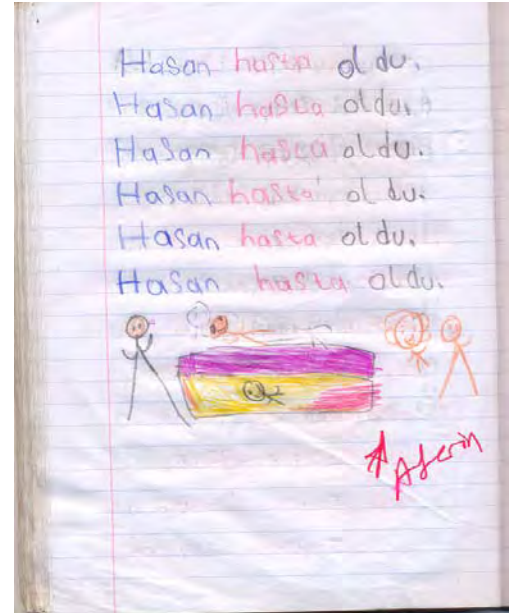 Hasan hasta oldu.
Hasan hasta oldu.
Hasan hasta oldu.
Hasan hasta oldu.
Hasan hasta oldu.
Hasan hasta oldu.
Aferin